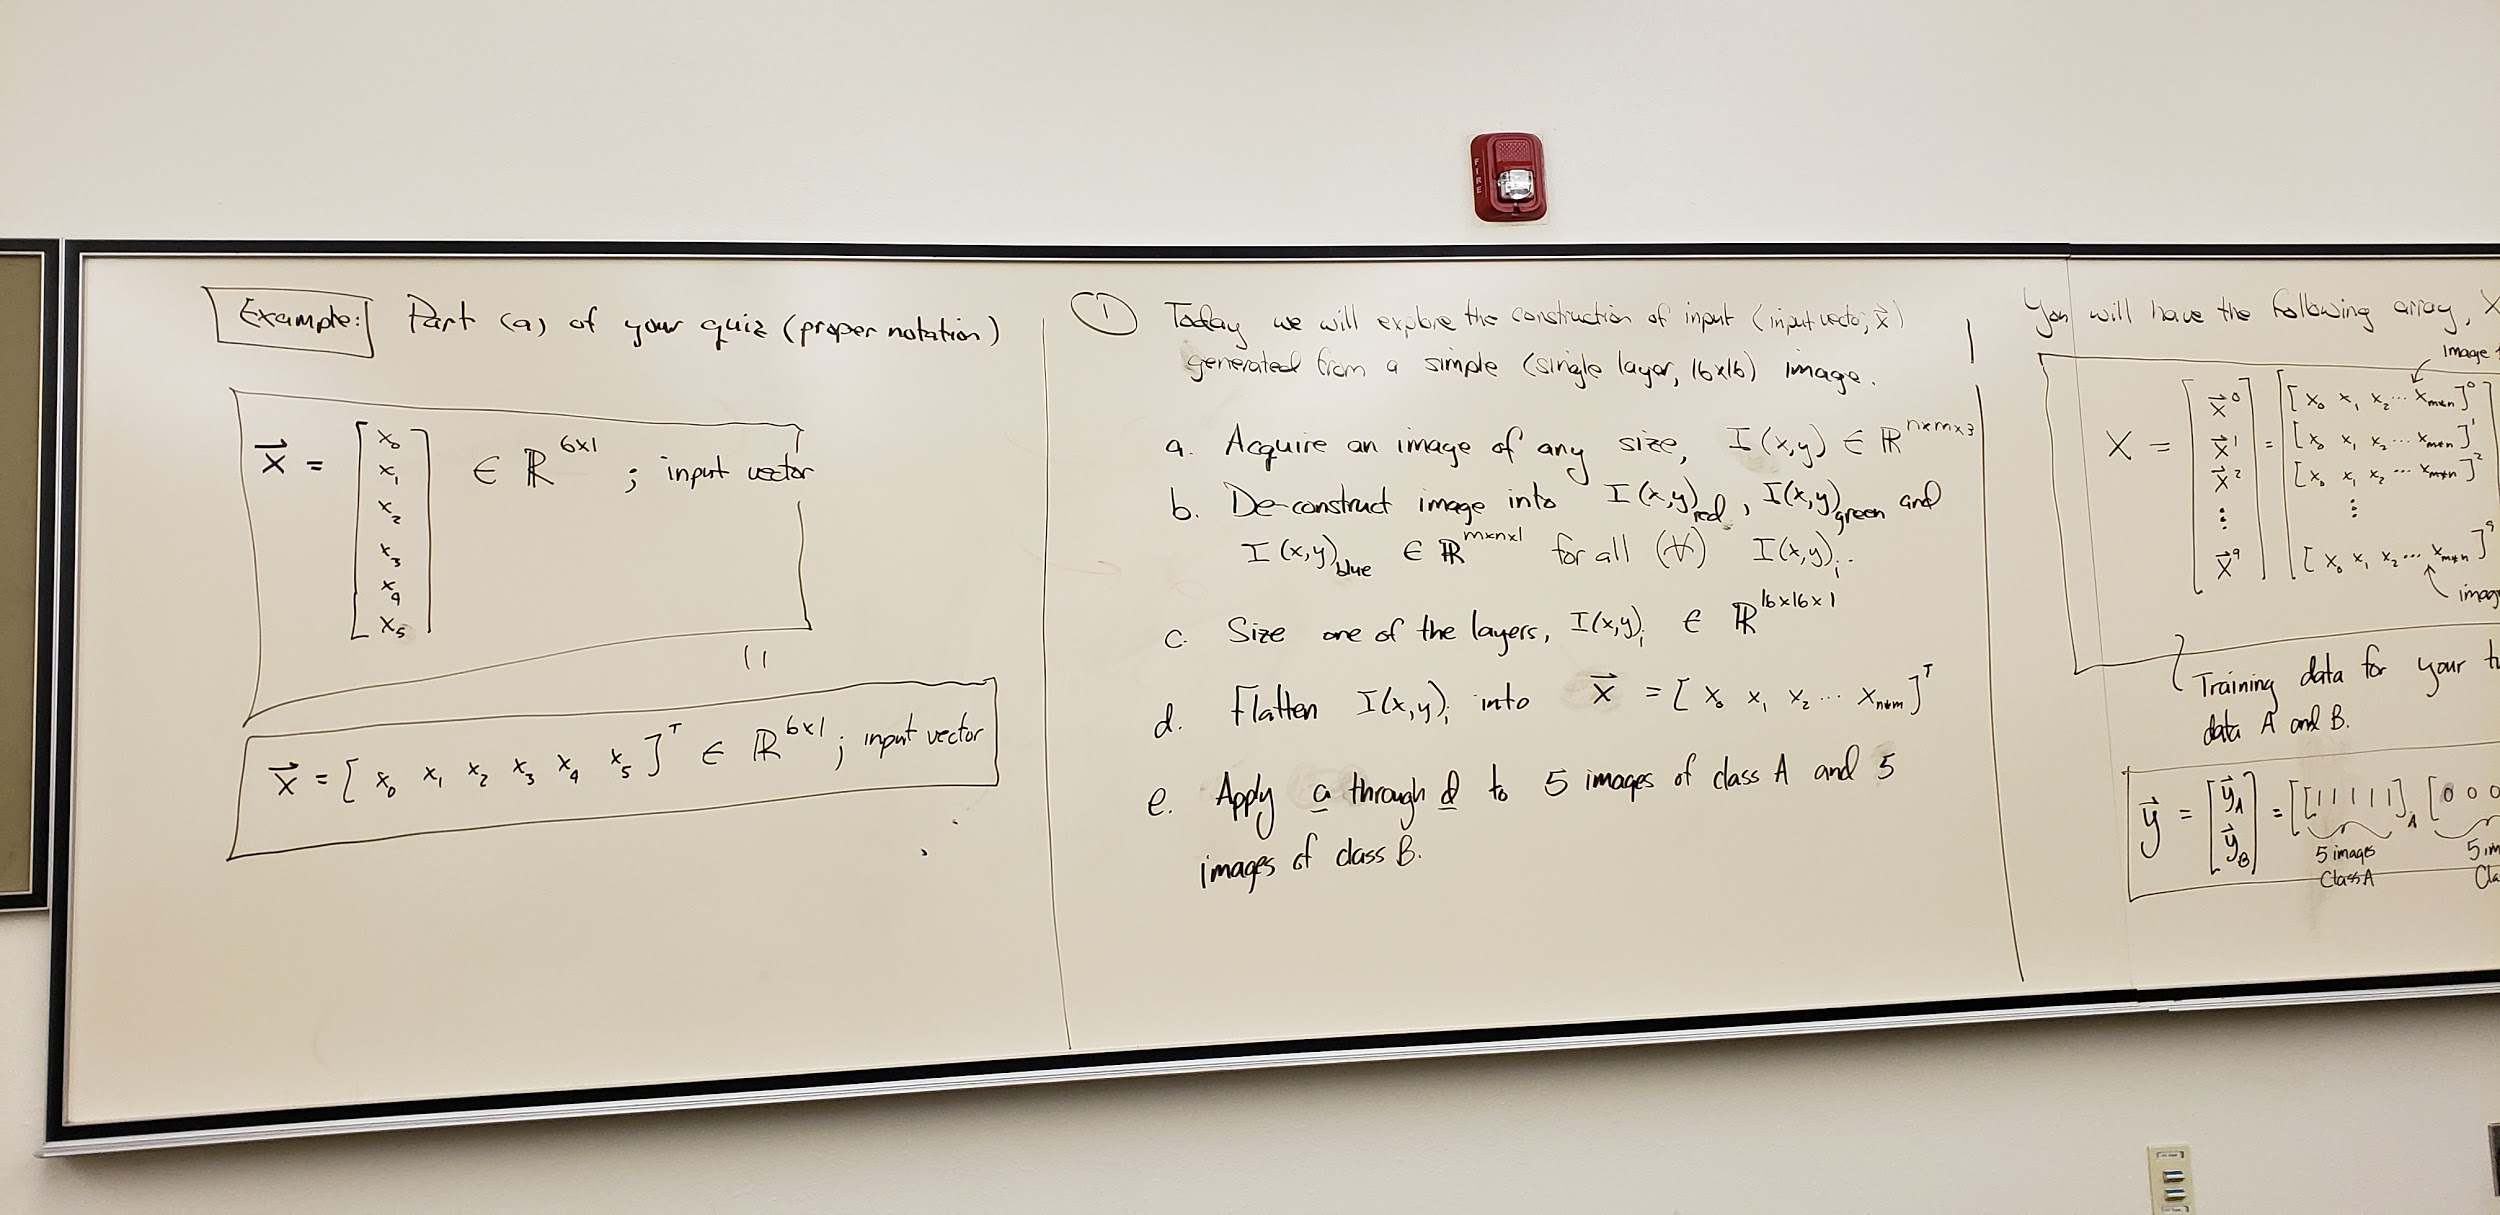 FIRE
Example: Part (a) of your quiz (proper notation)
x⃗ = [x₀ x₁ x₂ x₃ x₄ x₅] ∈ ℝ^6x1 ; input vector
x⃗ = [x₀ x₁ x₂ x₃ x₄ x₅]^T ∈ ℝ^6x1 ; input vector
① Today we will explore the construction of input (input vector, x⃗)
generated from a simple (single layer, 16x16) image.
a. Acquire an image of any size, I(x,y) ∈ ℝ^nxmx3
b. De-construct image into I(x,y)red, I(x,y)green and
I(x,y)blue ∈ ℝ^mxnx1 for all (∀) I(x,y)ᵢ.
c. Size one of the layers, I(x,y)ᵢ ∈ ℝ^16x16x1
d. Flatten I(x,y)ᵢ into x⃗ = [x₀ x₁ x₂ ... xn*m]^T
e. Apply a through d to 5 images of class A and 5
images of class B.
You will have the following array, X
image
X = [x⃗⁰ x⃗¹ x⃗² ⋮ x⃗⁹] = [[x₀ x₁ x₂ ... xm*n]⁰
[x₀ x₁ x₂ ... xm*n]¹
[x₀ x₁ x₂ ... xm*n]²
⋮
[x₀ x₁ x₂ ... xm*n]⁹
Training data for your
data A and B.
y⃗ = [y⃗A y⃗B] = [[1 1 1 1 1]A [0 0 0
5 images
Class A